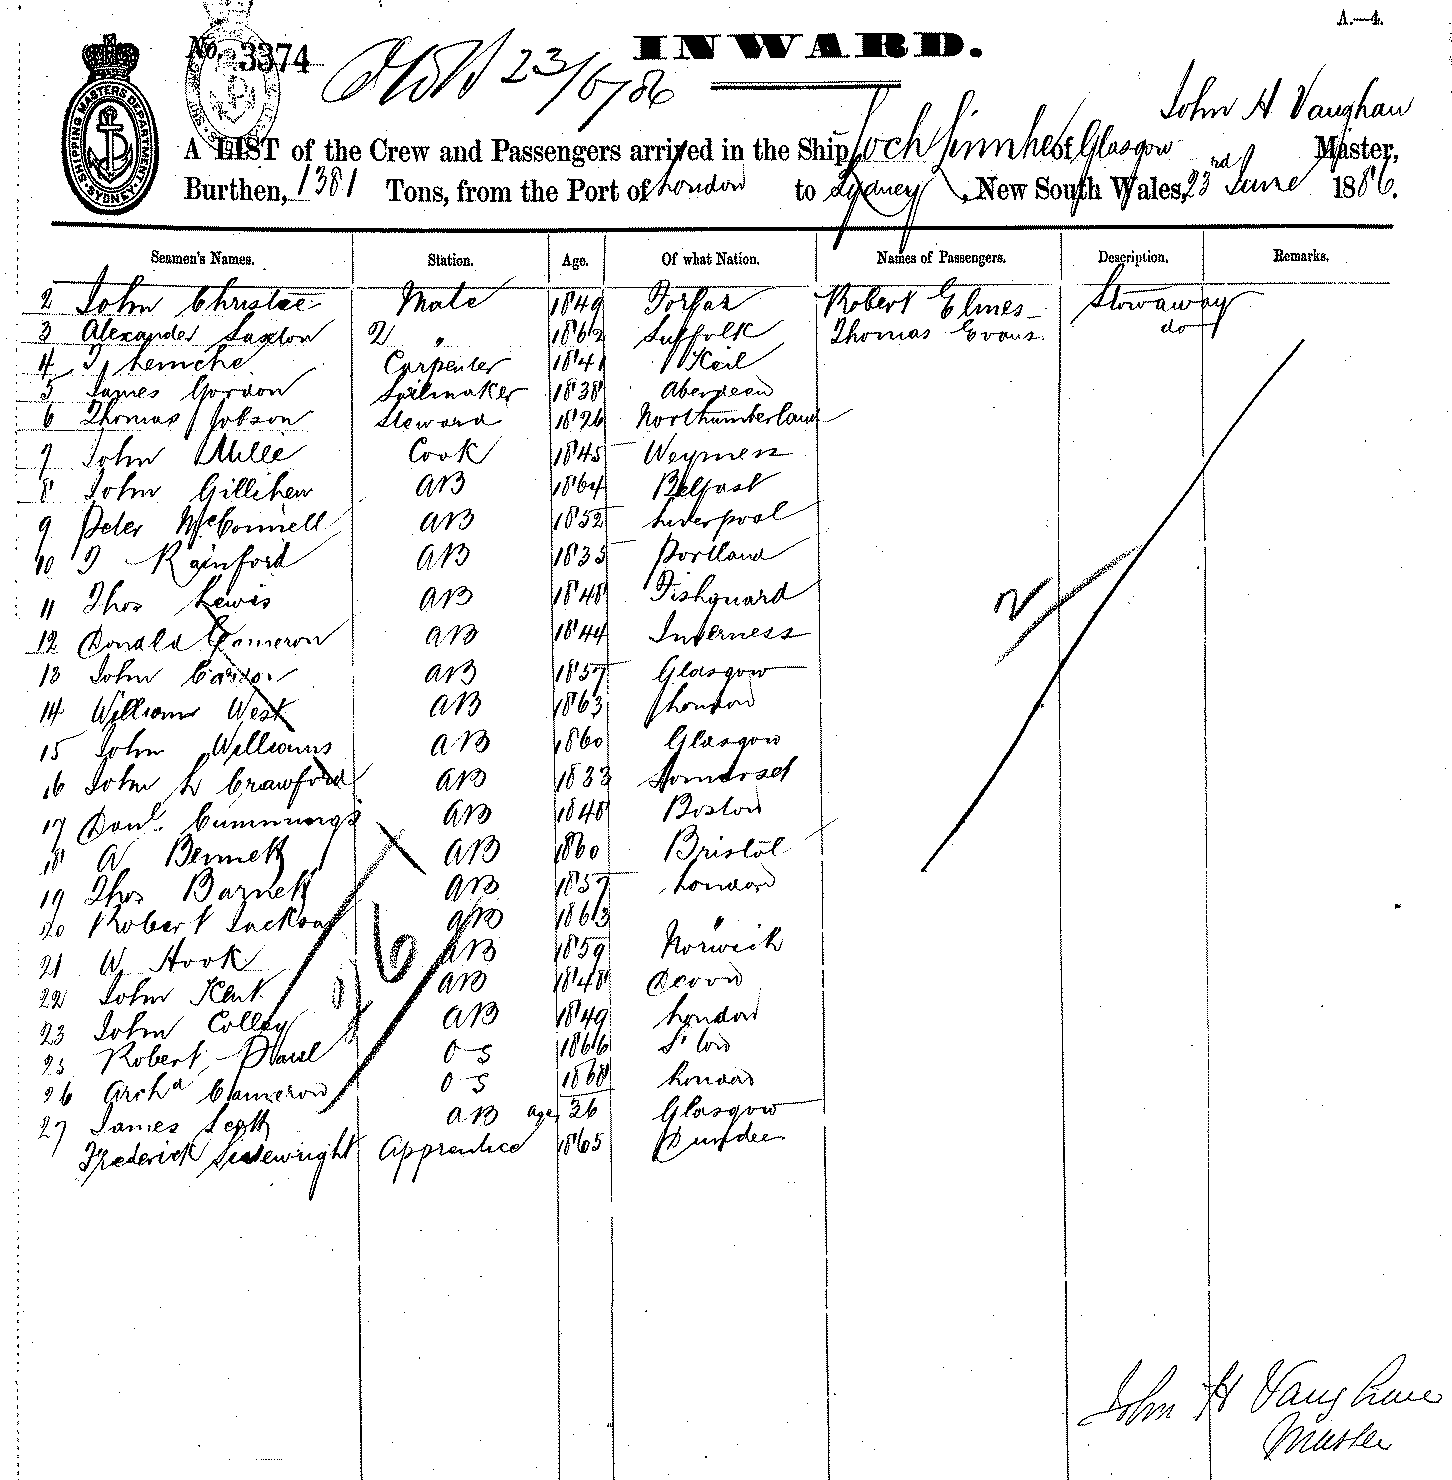 A.—4.
No. 3374
23/6/86
INWARD.
SHIPPING MASTERS DEPARTMENT SYDNEY
John H Vaughan
A LIST of the Crew and Passengers arrived in the Ship Loch Linnhe of Glasgow Master,
Burthen, 1381 Tons, from the Port of London to Sydney, New South Wales, 23rd June 1886.
Seamen's Names. Station. Age. Of what Nation. Names of Passengers. Description. Remarks.
2 John Christie Mate 1849 Forfar Robert Elmes Stowaway
3 Alexander Saxton 2 " 1862 Suffolk Thomas Evans do
4 Carpenter 1841 Keil
5 James Gordon Sailmaker 1838 Aberdeen
6 Thomas Jobson Steward 1826 Northumberland
7 John Mille Cook 1845 Weymess
8 John Gillihen AB 1864 Belfast
9 Peter McConnell AB 1852 Liverpool
10 T Rainford AB 1835 Portland
11 Thos Lewis AB 1848 Fishguard
12 Donald Cameron AB 1844 Inverness
13 John AB 1857 Glasgow
14 William West AB 1863 London
15 John Williams AB 1860 Glasgow
16 John L Crawford AB 1833 Somerset
17 Danl. Cummings AB 1848 Boston
18 W Bennett AB 1860 Bristol
19 Thos Barnett AB 1857 London
20 Robert Jackson AB 1863 "
21 W Hook AB 1859 Norwich
22 John Kent AB 1848 Devon
23 John Colley AB 1849 London
25 Robert Paul O S 1866
26 Archd Cameron O S 1868 London
27 James Scott AB age 36 Glasgow
Frederick Sievewright Apprentice 1865 Dundee
2
26
John H Vaughan
Master